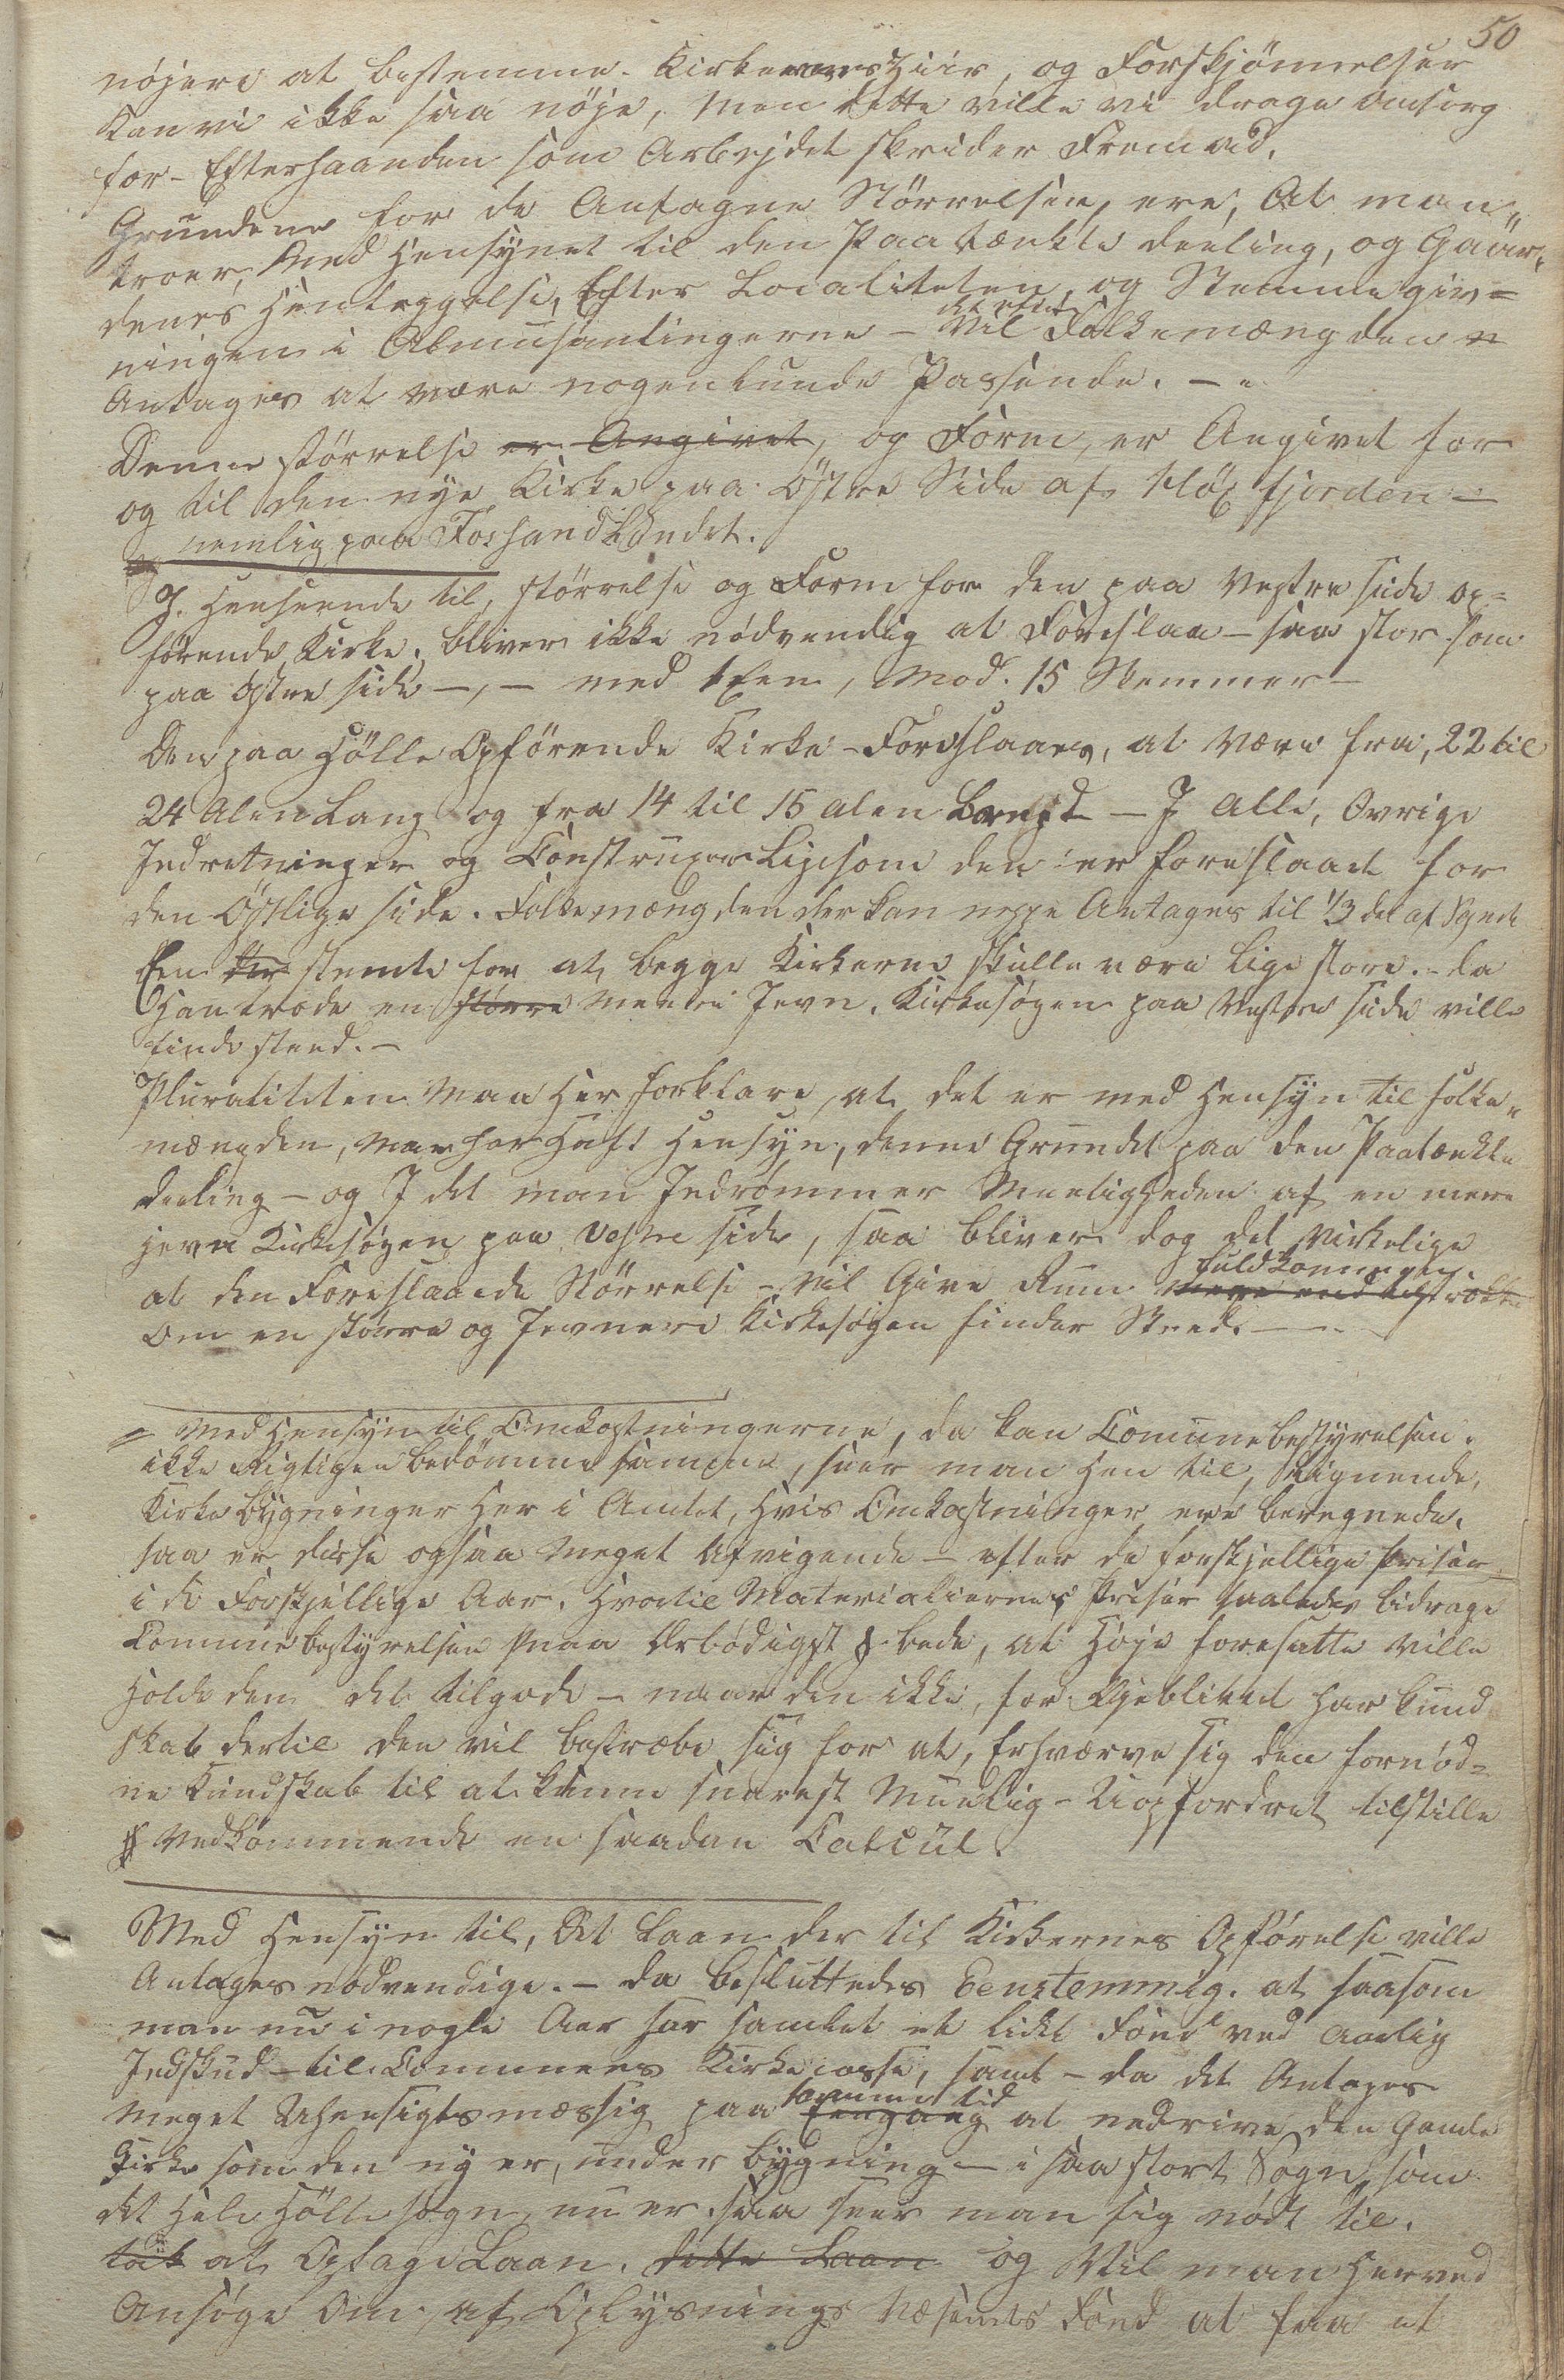 50
nöjere at bestemme. Kirkernes Ziir, og Forskjönnelser
kan vi ikke saa nöje, Men dette ville vi drage Omsorg
for - Efterhaanden som Arbejdet skrider Fremad.
Grundene for de Antagne Störrelser, ere, At man„
troer, Med Hensynet til den Paatænkte deeling, og Gaar„
denes Henlæggelse, Efter Localiteten, og Stemmegiv=
ningen i Almuesamlingerne - Vil Folkemængden
Antages at være nogenlunde Passende. -
Denne störrelse er Angivet, og Form, er Angivet for
og til den nye Kirke paa Östre Side af Höx fjorden -
nemlig paa Foshandlandet.
J. Henseende til, störrelse og Form for den paa Vestre side op=
förende Kirke, bliver ikke nödvendig at Foreslaa - saa stor som
paa Östre side -, - med Een, Mod. 15 Stemmer -
Den paa Hölle Opförende Kirke - Foreslaaes, at være fra, 22 til
24 Alen Lang og fra 14 til 15 alen bred - J alle, Övrige
Indretninger og Construxion Ligesom den er foreslaaet for
den Östlige side. Folkemængden der kan neppe Antages til 1/3 del af Sognet
Een stemte for at begge Kirkerne skulle være lige store. - da
Han troede en större mere Jevn, Kirkesögen paa Vestre side ville
finde steed. -
Pluraliteten Maa Her forklare, at det er med Hensyn til folke„
mængden, Man har Haft Hensyn, denne Grundet paa den Paatænkte
deeling - og J det man Indrömmer Mueligheden af en mere
jevn Kirkesögen paa Vestre side, saa bliver dog det Virkelige
fuldkommen
at den Foreslaaede Störrelse - vil Give Rum mere end tilstrækk
om en större og Jevnere Kirkesögen finder Steed. -
Med Hensyn til Omkostningerne, da kan Comunebestyrelsen.
ikke Rigtigen bedömme samme, seer man Hen til, lignende,
Kirke bygninger Her i Amtet, Hvis Omkostninger, ere beregnede,
saa er disse ogsaa Meget Afvigende - efter de forskjellige priser
i de Forskjellige Aar, Hvortil Materialiernes priser saaledes bidrage
Commünebestyrelsen maa Ærbödigst bede, at Höje foresatte ville
Holde den det tilgode - naar den ikke, for Öjeblikket har kund
skab dertil den vil bestræbe sig for at, Erhværve sig den fornöd=
ne Kundskab til at kunne snarest Muelig - Uopfordret tilstille
Vedkommende en saadan Calcül.
Med Hensyn til, At Laan der til Kirkernes Opförelse ville
Antages nödvendige. - da besluttedes Eenstemmig. at saasom
man nu i nogle Aar har samlet et lidet Fönd ved aarlig
Indskud - til Communens Kirkecasse, samt - da det Antages
samme tid
Meget Uhensigtsmæssig paa Eengang at nedrive den Gamle
Kirke som den ny er, under bygning - i saa stort Sogn, som
det Hele Hölle sogn nu er. saa seer man sig nödt til.
at Optage Laan. dette Laan og Vil man Herved
Ansöge Om, af Oplysnings Væsenets Fönd at faa et